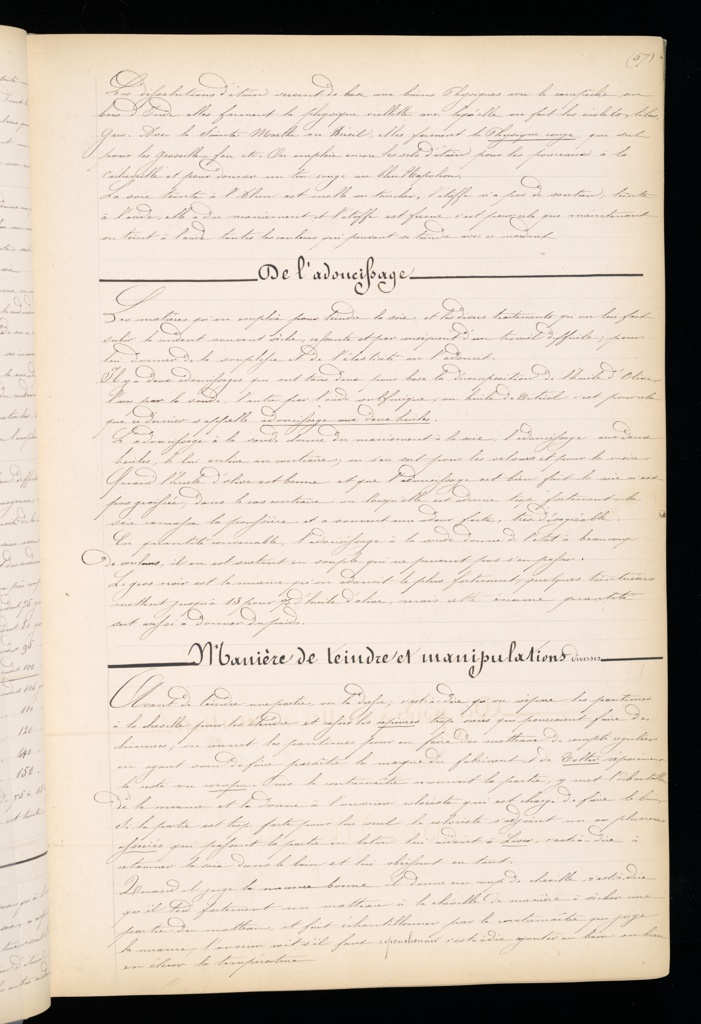 (57)
Les dissolutions d'étain servent de base aux bains Physiques avec le campêche ou
bois d'Inde elles forment la physique violette avec laquelle on fait les violets, lilas
Gris. Avec le Sainte Marthe ou Brésil elles forment la Physique rouge, qui sert
pour les Groseille, feu etc. On emploie encore les sels d'étain pour les ponceaux à la
cochenille et pour donner un ton rouge au Bleu Napoléon.
La soie teinte à l'Alun est molle au toucher, l'étoffe n'a pas de soutien, teinte
à l'acide, elle a du maniement et l'étoffe est ferme c'est pour cela que maintenant
on teint à l'acide toutes les couleurs qui peuvent se teindre avec ce mordant
De l'adoucissage
Les matières qu'on emploie pour teindre la soie et les divers traitements qu'on leur fait
subir la rendent souvent sèche, cassante et par conséquent d'un travail difficile, pour
lui donner de la souplesse et de l'élasticité on l'adoucit.
Il y a deux adoucissages qui ont tous deux pour base la décomposition de l'huile d'Olive,
l'un par la soude, l'autre par l'acide sulfurique, ou huile de vitriol c'est pour cela
que ce dernier s'appelle adoucissage aux deux huiles.
L'adoucissage à la soude donne du maniement à la soie, l'adoucissage aux deux
huiles, le lui enlève au contraire, on s'en sert pour les velours et pour le noir.
Quand l'huile d'olive est bonne et que l'adoucissage est bien fait la soie n'est
pas graissée, dans le cas contraire ou lorsqu'elle est donnée trop fortement la
soie ramasse la poussière et a souvent une odeur forte, très désagréable.
En quantité convenable, l'adoucissage à la soude donne de l'éclat à beaucoup
de couleurs, il en est surtout en souple qui ne peuvent pas s'en passer.
Le gros noir est la nuance qu'on adoucit le plus fortement, quelques teinturiers
mettent jusqu'à 15 pour % d'huile d'olive, mais cette énorme quantité
sert aussi à donner du poids.
Manière de teindre et manipulations diverses
Avant de teindre une partie, on la défac, c'est à dire qu'on sépare les pantimes
à la cheville pour les étendre et après les
on réunit les pantimes pour en faire des matteaux de compte régulier
en ayant soin de faire paraître la marque du fabricant et de
Puis le contremaître reconnaît la partie, y met l'échantillon
de la nuance et la donne à l'ouvrier coloriste qui est chargé de faire le bain.
Si la partie est trop forte pour lui seul le coloriste s'adjoint un ou plusieurs
associés qui passent la partie en bâton lui aident à Liser, c'est à dire à
retourner la soie dans le bain et lui obéissent en tout.
Quand il juge la nuance bonne, il donne un coup de cheville c'est à dire
qu'il tord fortement un matteau à la cheville de manière à sécher une
partie du matteau, et fait échantillonner par le contremaître qui juge
la nuance, l'ouvrier voit s'il faut c'est à dire ajouter au bain ou bien
en élever la température